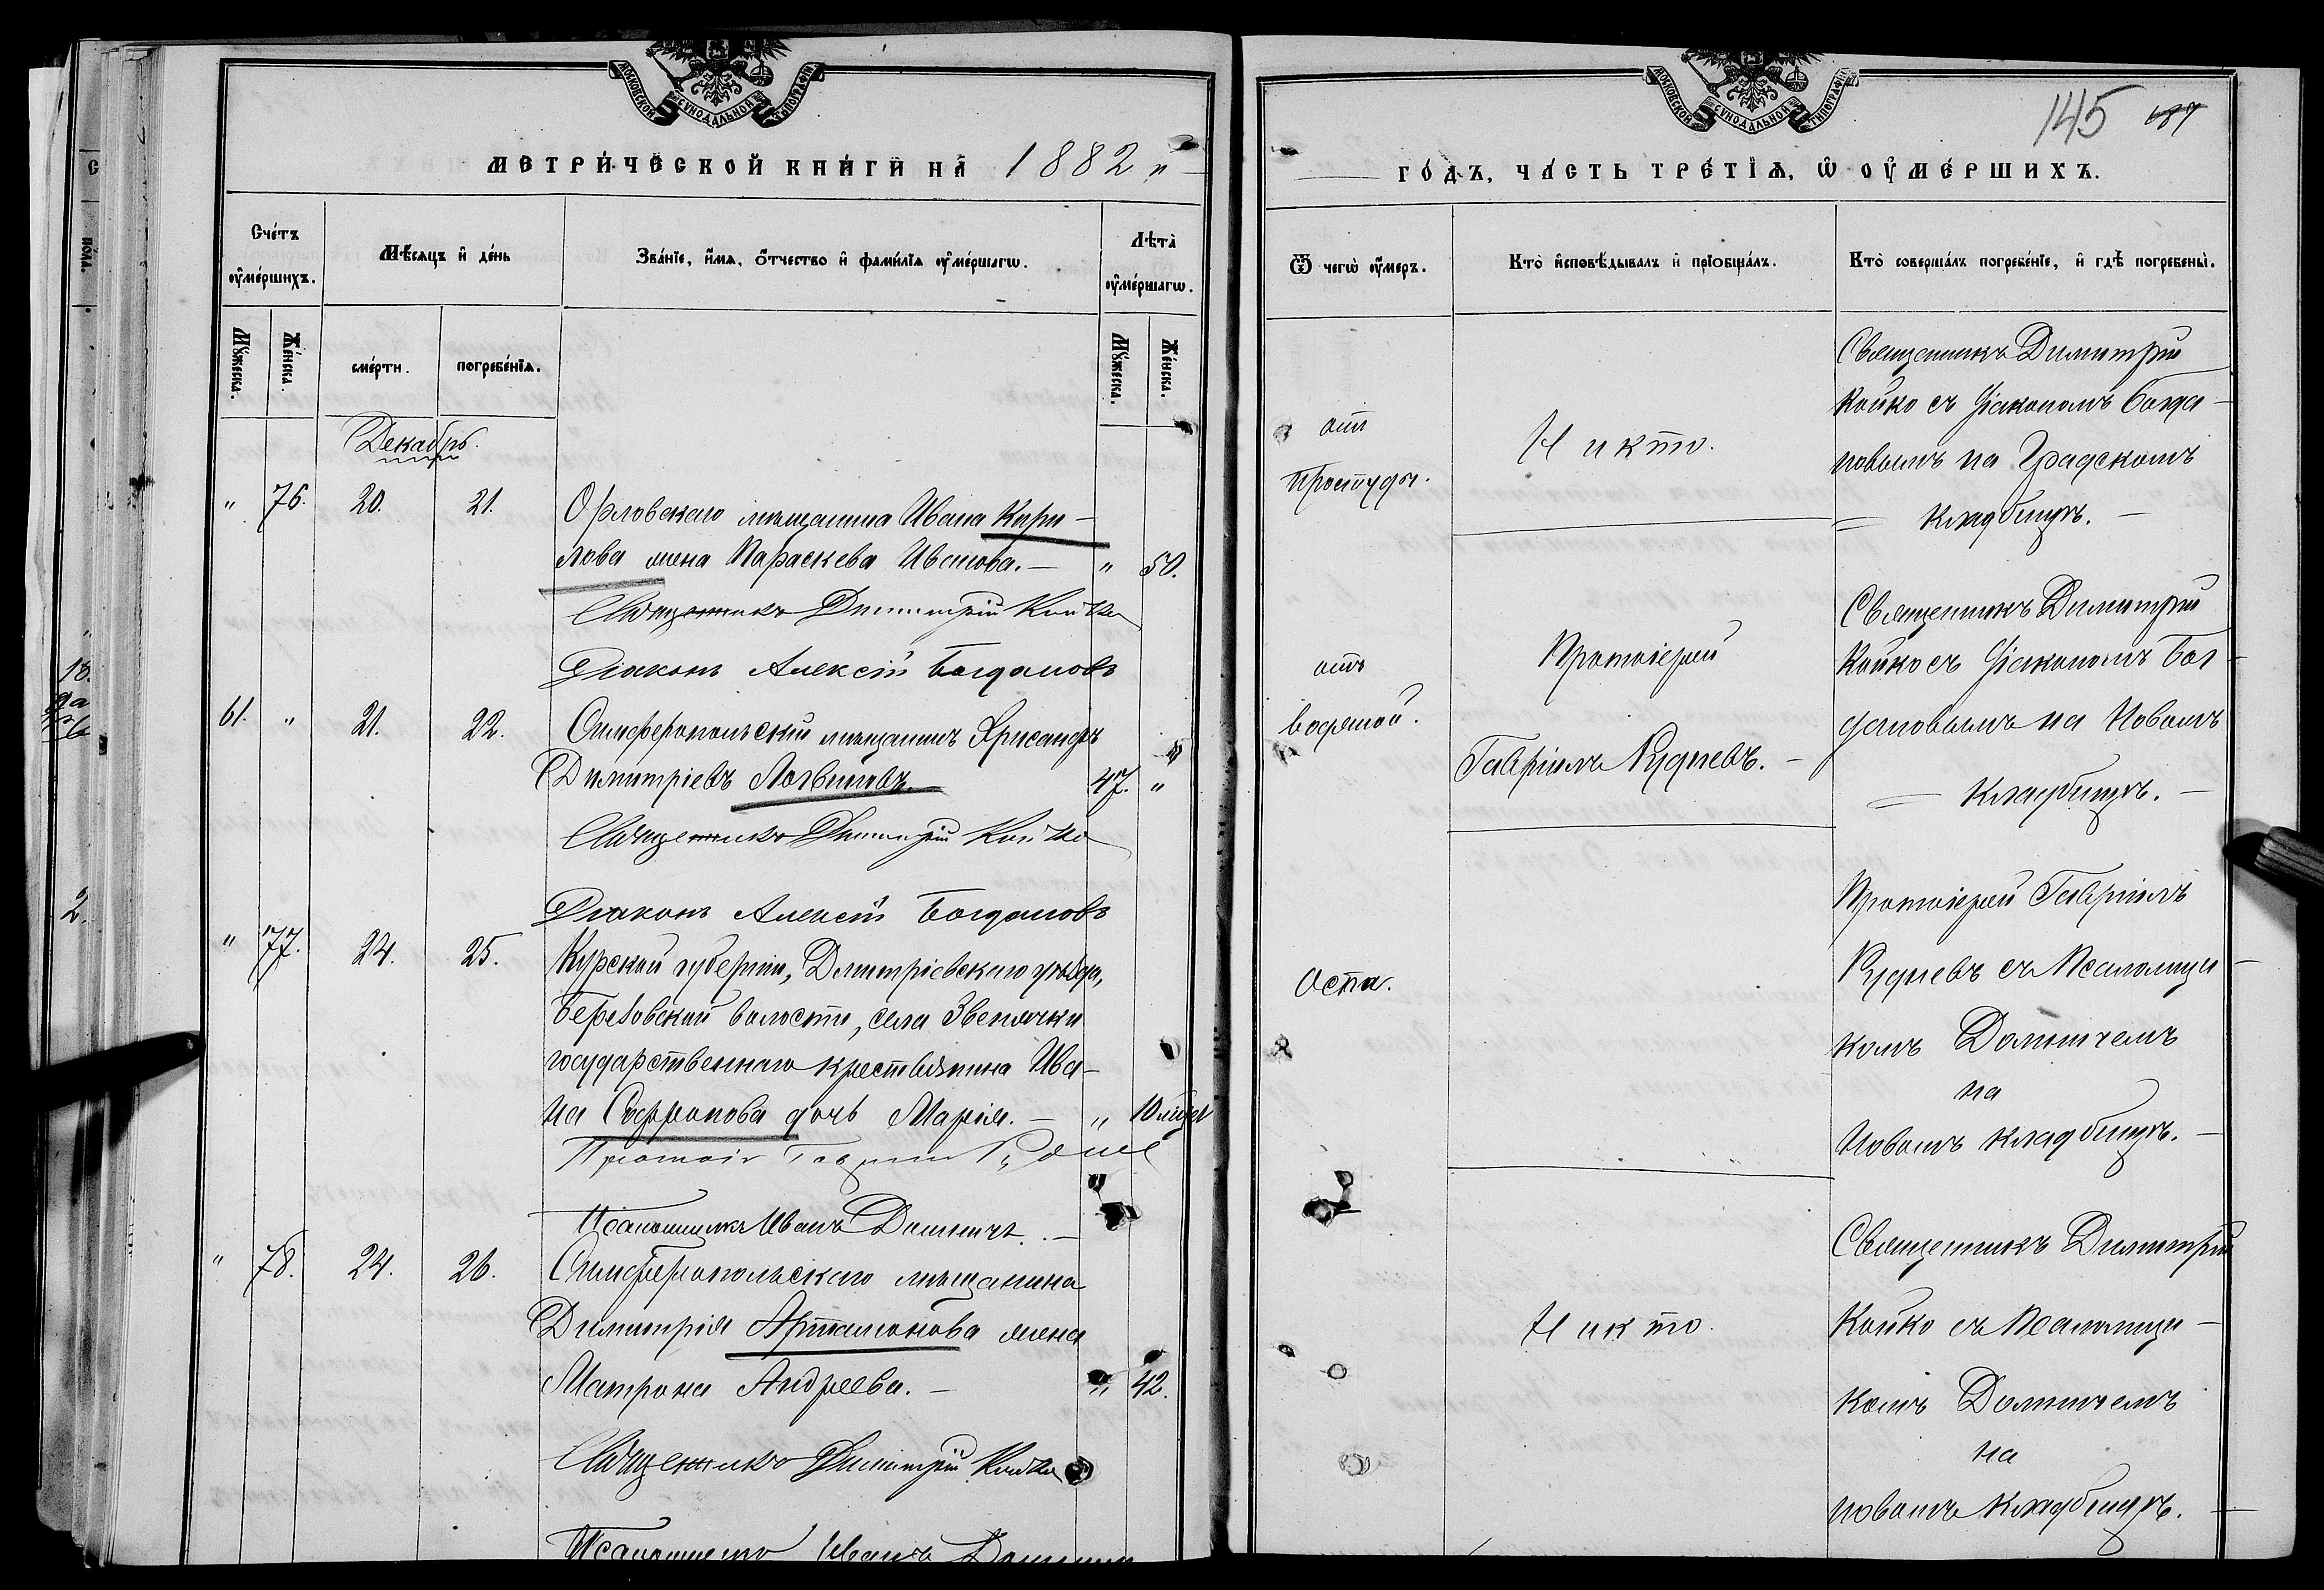 МОСКОВСКОЙ СУНОДАЛЬНОЙ ТИПОГРАФІИ
МЕТРИ́ЧЕСКОЙ КНИ́ГИ НА̀ 1882 „
Сче́тъ ᲂу҆ме́ршихъ.
Мѣ́сяцъ и҆ де́нь
Зва́нїе, и҆́мѧ, ѻ҆́тчество и҆ фами́лїѧ ᲂу҆ме́ршагѡ.
Лѣта̀ ᲂу҆ме́ршагѡ.
Мꙋ́жеска.
Же́нска.
сме́рти.
погребе́нїѧ.
Мꙋ́жеска.
Же́нска.
Декабрь.
„ 76. 20. 21. Орловскаго мѣщанина Ивана Кири-
лова жена Параскева Иванова. — „ 50.
Священникъ Димитрій Койко
Діаконъ Алексій Богдановъ
61. „ 21. 22. Симферопольскій мѣщанинъ Хрисанфъ
Димитріевъ Логвиновъ. 47. „
Священникъ Димитрій Койко
Діаконъ Алексій Богдановъ
„ 77. 24. 25. Курской губерніи, Дмитріевскаго уѣзда,
Березовской волости, села Звенячки
государственнаго крестьянина Ива-
на Софронова дочь Марія. — „ 10 мѣс
Протоіе Гавріил Руднев
Псаломщикъ Иванъ Долинчъ. —
„ 78. 24. 26. Симферопольскаго мѣщанина
Димитрія Артамонова жена
Матрона Андреева. — „ 42.
Священникъ Димитрій Койко
Псаломщикъ Иванъ
МОСКОВСКОЙ СУНОДАЛЬНОЙ ТИПОГРАФІИ
145 187
ГО́ДЪ, ЧА́СТЬ ТРЕ́ТЇѦ, Ѡ҆ ОУ҆МЕ́РШИХЪ.
Ѿ чегѡ̀ ᲂу҆́меръ.
Кто̀ и҆сповѣ́дывалъ и҆ прїобща́лъ.
Кто̀ соверша́лъ погребе́нїе, и҆ гдѣ̀ погребены̀.
отъ
простуды.
Никто.
Священникъ Димитрій
Койко съ Діакономъ Богда-
новымъ на Градскомъ
Кладбищѣ. —
отъ
водяной.
Протоіерей
Гавріилъ Рудневъ. —
Священникъ Димитрій
Койко съ Діакономъ Бог-
дановымъ на Новомъ
— Кладбищѣ. —
Оспа.
Протоіерей Гавріилъ
Рудневъ съ Псаломщи-
комъ Долинчемъ
на
Новомъ Кладбищѣ. —
Никто.
Священникъ Димитрій
Койко съ Псаломщи-
комъ Долинчемъ
на
Новомъ Кладбищѣ. —